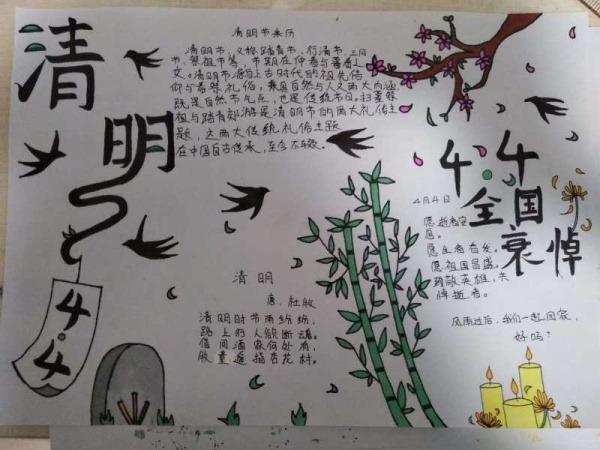 清明
4.4
清明节来历
清明节，又称踏青节、行清节、三月
节、祭祖节等，节期在仲春与暮春之
交。清明节源自上古时代的祖先信
仰与春祭礼俗，兼具自然与人文两大内涵，
既是自然节气点，也是传统节日。扫墓祭
祖与踏青郊游是清明节的两大礼俗主
题，这两大传统礼俗主题
在中国自古传承，至今不辍。
清明
唐 杜牧
清明时节雨纷纷，
路上行人欲断魂。
借问酒家何处有，
牧童遥指杏花村。
4.4
全国
哀悼
4月4日
愿逝者安
息。
愿生者奋发。
愿祖国昌盛。
致敬英雄，共
悼逝者。
风雨过后，我们一起回家，
好吗？